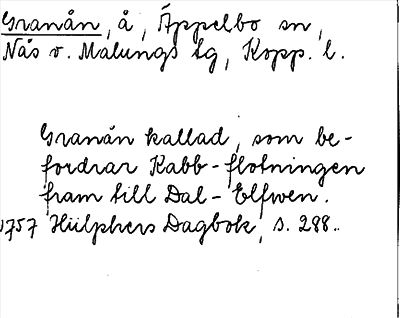 Granån, å, Äppelbo sn,
Nås o. Malungs tg, Kopp. l.
Granån kallad, som be-
fordrar Kabb-flotningen
fram till Dal-Elfwen.
1757 Hülphers Dagbok, s. 288.